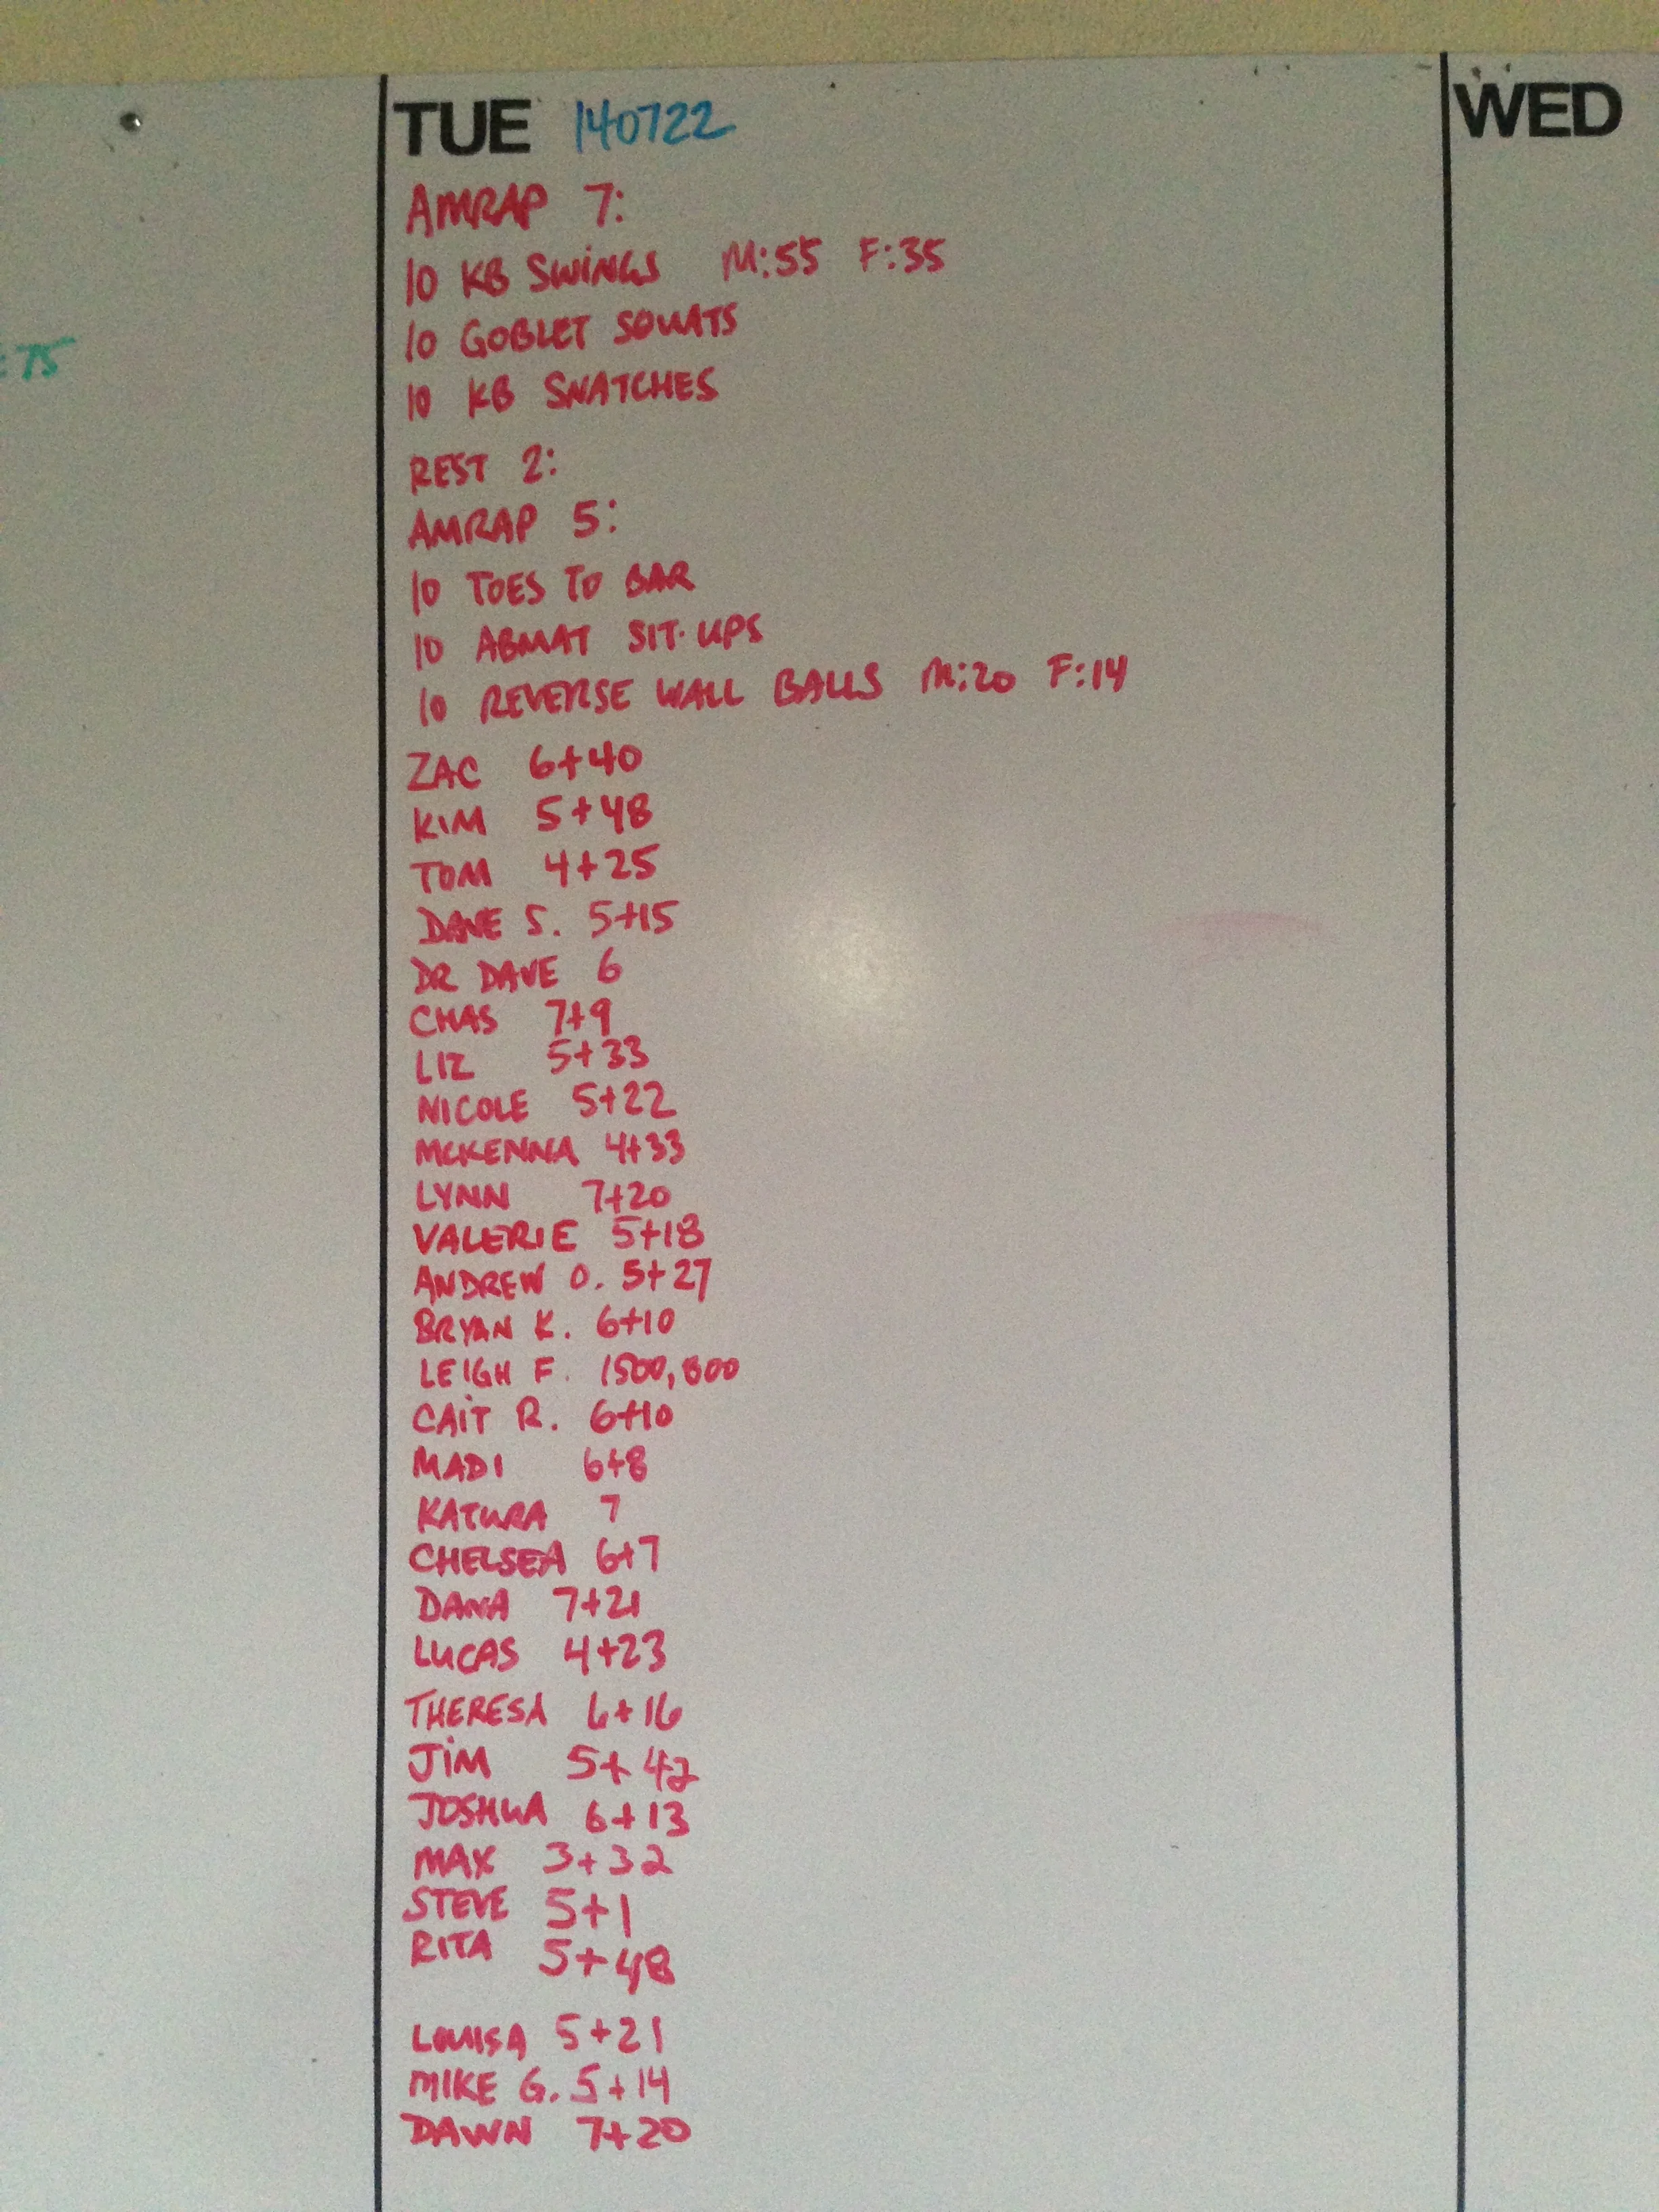 TUE 140722
WED
: 75
AMRAP 7:
10 KB SWINGS M:55 F:35
10 GOBLET SQUATS
10 KB SNATCHES
REST 2:
AMRAP 5:
10 TOES TO BAR
10 ABMAT SIT-UPS
10 REVERSE WALL BALLS M:20 F:14
ZAC 6+40
KIM 5+48
TOM 4+25
DAVE S. 5+15
DR DAVE 6
CHAS 7+9
LIZ 5+33
NICOLE 5+22
MCKENNA 4+33
LYNN 7+20
VALERIE 5+18
ANDREW O. 5+27
BRYAN K. 6+10
LEIGH F. 1500, 800
CAIT R. 6+10
MADI 6+8
KATURA 7
CHELSEA 6+7
DANA 7+21
LUCAS 4+23
THERESA 6+16
JIM 5+42
JOSHUA 6+13
MAX 3+32
STEVE 5+1
RITA 5+48
LOUISA 5+21
MIKE G. 5+14
DAWN 7+20